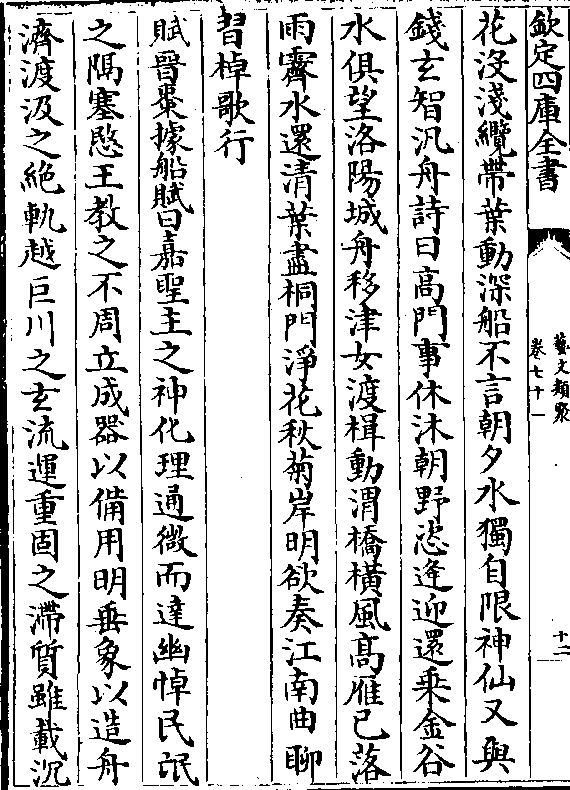 欽定四庫全書
藝文類聚
卷七十一
十二
花没淺纜帶葉動深船不言朝夕水獨自限神仙又與
錢玄智汎舟詩曰高門事休沐朝野恣逢迎還乘金谷
水俱望洛陽城舟移津女渡楫動渭橋横風高雁已落
雨霽水還清葉盡桐門淨花秋菊岸明欲奏江南曲聊
習棹歌行
賦晉棗據船賦曰嘉聖王之神化理通微而達幽悼民氓
之隔塞愍王教之不周立成器以備用明垂象以造舟
濟渡汲之絶軌越巨川之玄流運重固之滯質雖載沉